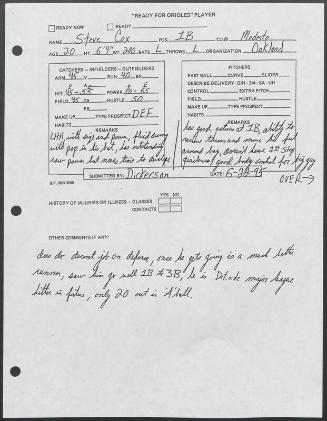 "READY FOR ORIOLES" PLAYER
READY NOW
READY
NAME Steve Cox POS. 1B CLUB Modesto
AGE 20 HT 6'4" WT 200 BATS L THROWS L ORGANIZATION Oakland
CATCHERS - INFIELDERS - OUTFIELDERS
ARM 45 V RUN 40
HIT 45-55 POWER
FIELD 45 HUSTLE 50
MAKE UP TYPE PROSPECT DEF
HABITS
REMARKS
LHH with size and power, fluid swing
with pop in his bat, has outstanding
raw power but needs time to develope
SUBMITTED BY: Dickerson
PITCHERS
FAST BALL CURVE SLIDER
DESCRIBE DELIVERY: O/H - 3/4 - SA - UH
CONTROL EXTRA PITCH
FIELD HUSTLE
MAKE UP TYPE PROSPECT
HABITS
REMARKS
has good actions at 1B, ability to
around bag, doesn't have 1st step
quickness, good body control for big guy
DATE: 6-28-95
OVER →
HISTORY OF INJURIES OR ILLNESS: - GLASSES
CONTACTS
YES NO
OTHER COMMENTS IF ANY:
does decent job on defense, once he gets going is a much better
runner, saw him go well 1B to 3B, he is major league
hitter in future, only 20 out in 'A' ball.